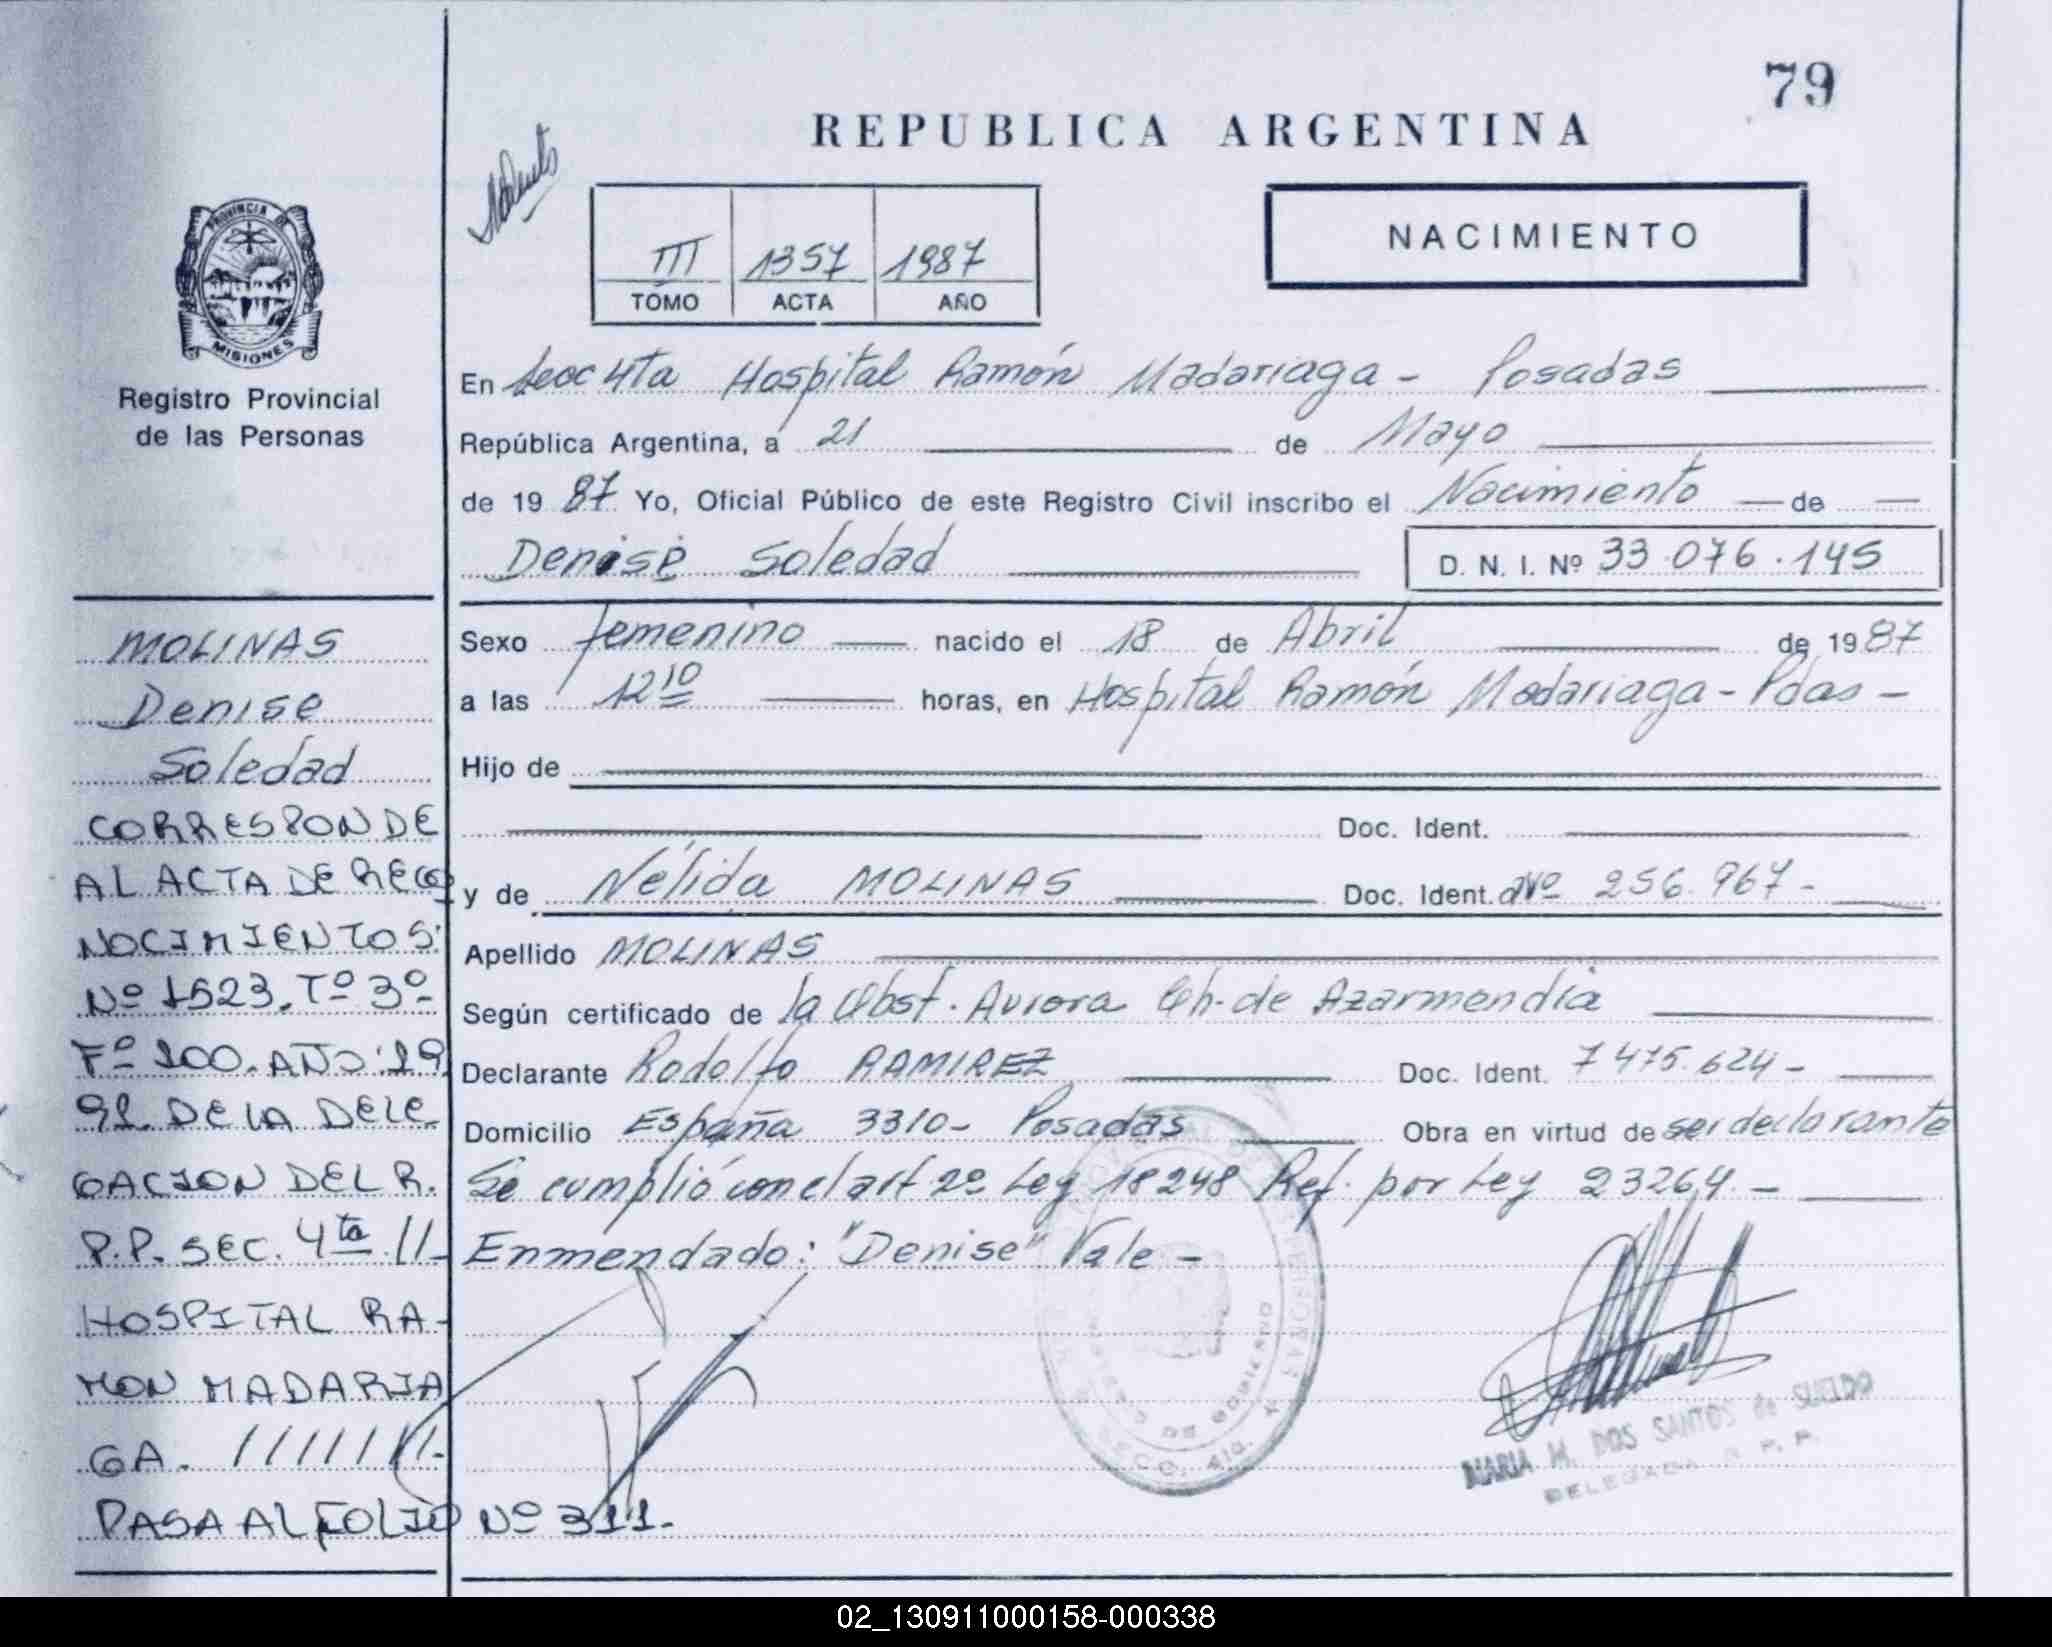 79
REPUBLICA ARGENTINA
PROVINCIA DE
MISIONES
Registro Provincial
de las Personas
III 1357 1987
TOMO ACTA AÑO
NACIMIENTO
En Secc 4ta Hospital Ramón Madariaga - Posadas
República Argentina, a 21 de Mayo
de 1987 Yo, Oficial Público de este Registro Civil inscribo el Nacimiento de
Denise Soledad D. N. I. Nº 33.076.145
Sexo femenino nacido el 18 de Abril de 1987
a las 12 10 horas, en Hospital Ramón Madariaga - Pdas -
Hijo de
Doc. Ident.
y de Nélida MOLINAS Doc. Ident. Nº 256.967 -
Apellido MOLINAS
Según certificado de la Obst. Aurora Ch. de Azarmendia
Declarante Rodolfo RAMIREZ Doc. Ident. 7475.624 -
Domicilio España 3310 - Posadas Obra en virtud de ser declarante
Se cumplió con el art 2º Ley 18248 Ref. por Ley 23264. -
Enmendado: "Denise" Vale -
MOLINAS
Denise
Soledad
CORRESPONDE
AL ACTA DE RECO
NOCIMIENTOS:
Nº 1523. Tº 3º
Fº 100. AÑO 19
91. DE LA DELE
GACION DEL R.
P.P. SEC. 4ta //-
HOSPITAL RA-
MON MADARIA
GA. ///////.-
PASA AL FOLIO Nº 311.-
MARIA M. DOS SANTOS de SUELDO
DELEGADA R. P. P.
02_130911000158-000338